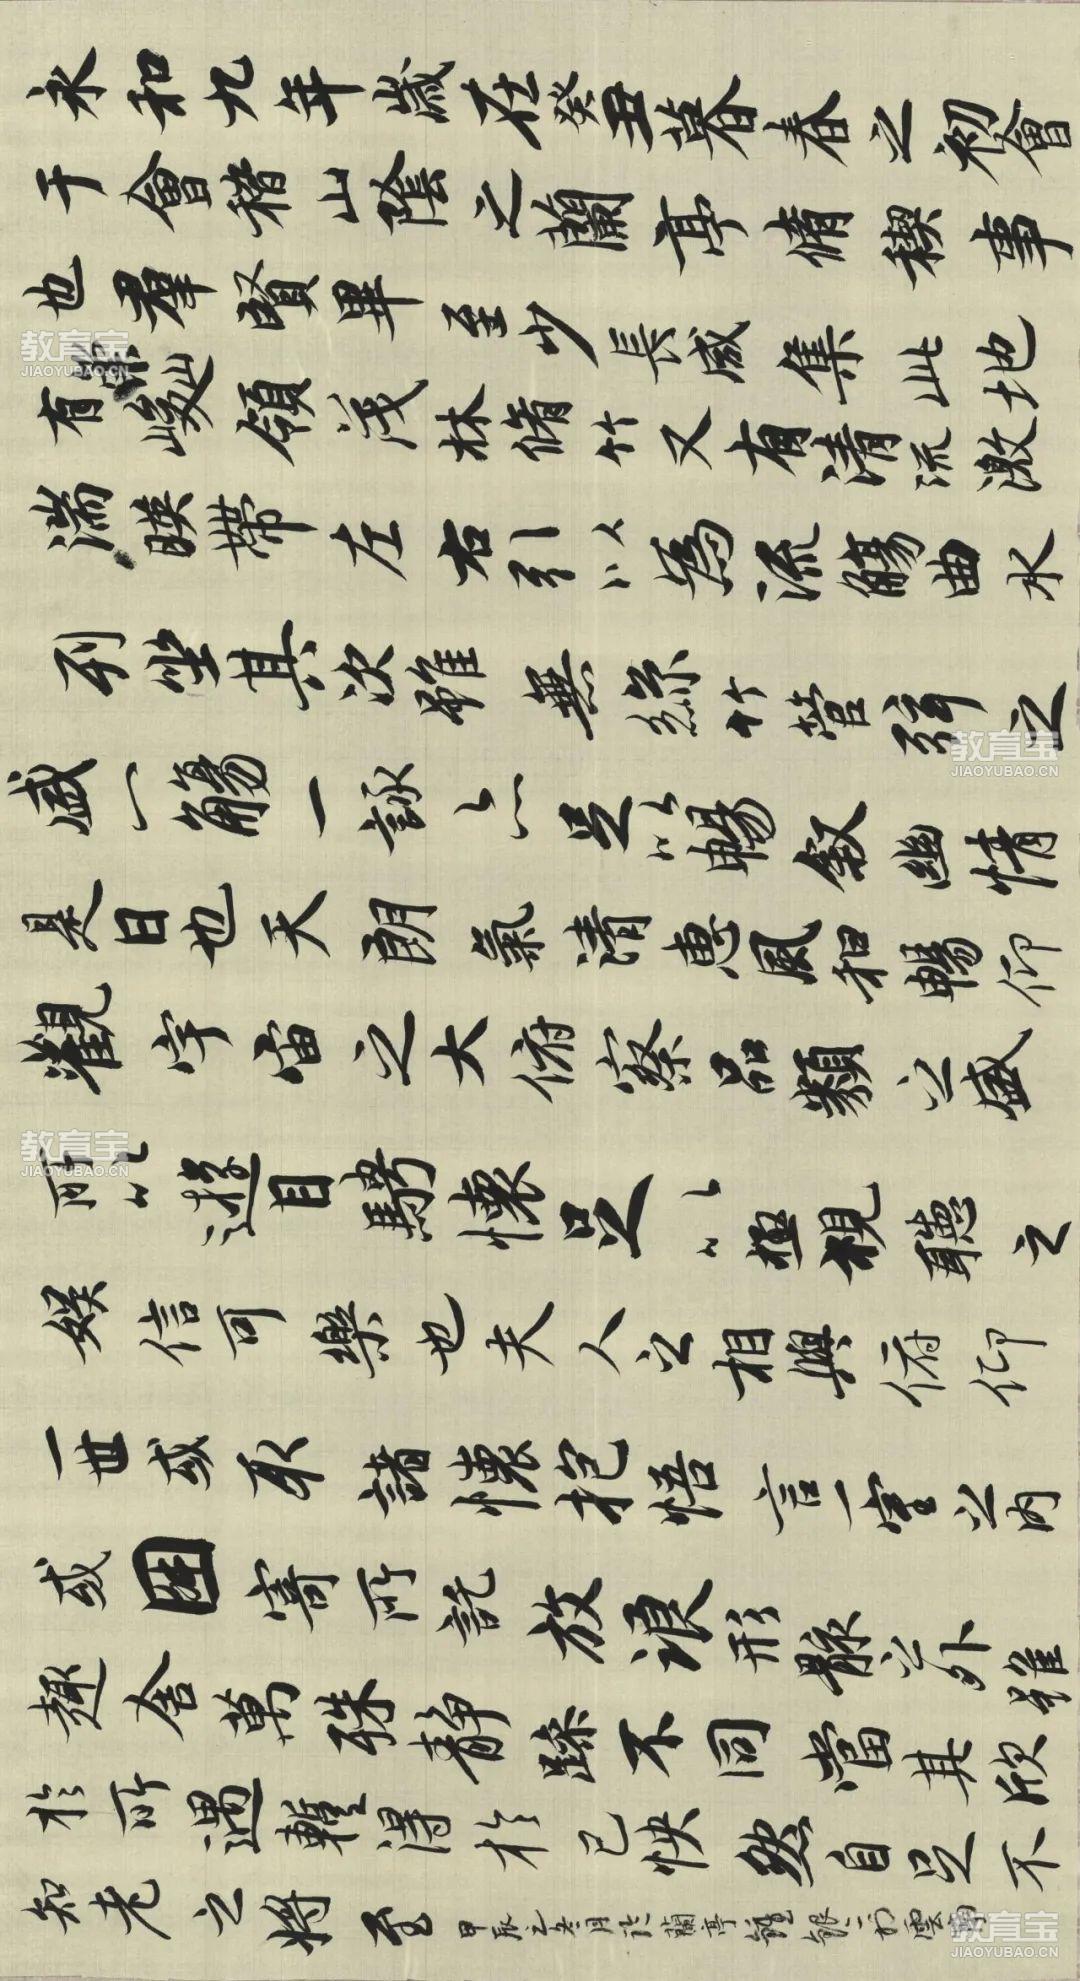 永和九年歲在癸丑暮春之初會
于會稽山陰之蘭亭脩稧事
也羣賢畢至少長咸集此地
有崇山峻領茂林脩竹又有清流激
湍暎帶左右引以為流觴曲水
列坐其次雖無絲竹管弦之
盛一觴一詠亦足以暢敘幽情
是日也天朗氣清惠風和暢仰
觀宇宙之大俯察品類之盛
所以遊目騁懷足以極視聽之
娛信可樂也夫人之相與俯仰
一世或取諸懷抱悟言一室之內
或因寄所託放浪形骸之外雖
趣舍萬殊靜躁不同當其欣
於所遇暫得於己怏然自足不
知老之將至
甲辰之冬月 蘭亭 雲
教育宝
JIAOYUBAO.CN
教育宝
JIAOYUBAO.CN
教育宝
JIAOYUBAO.CN
教育宝
JIAOYUBAO.CN